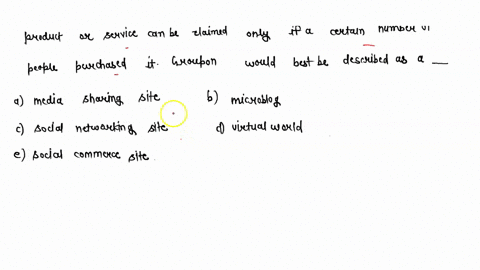 product or service can be claimed only if a certain number of
people purchased it. Groupon would best be described as a __
a) media sharing site b) microblog
c) social networking site d) virtual world
e) social commerce site